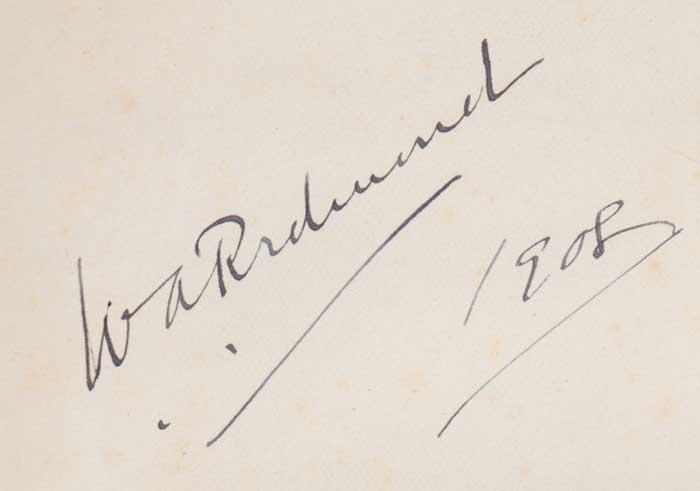 W. A. Redmond
1908